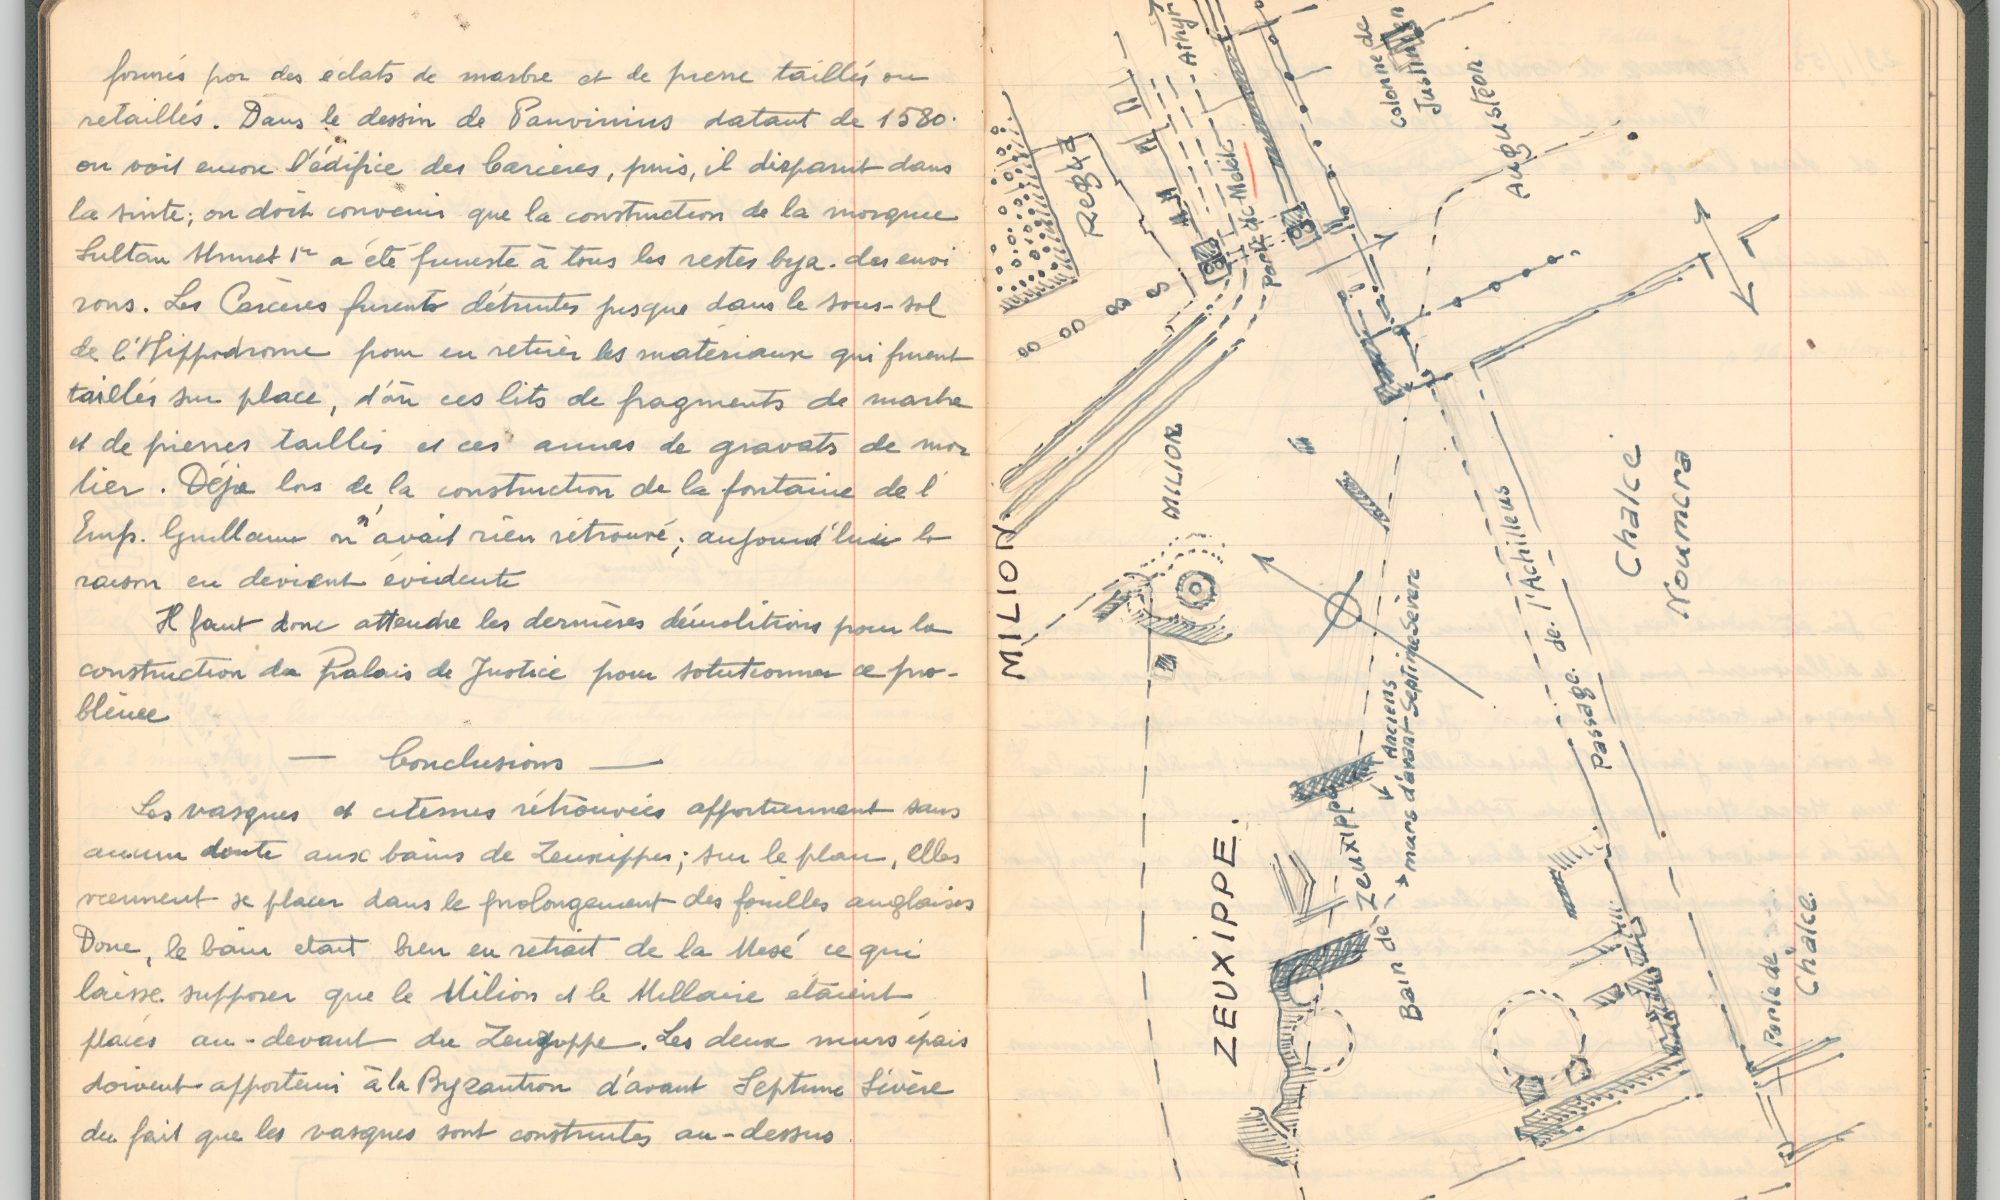 formés par des éclats de marbre et de pierre taillés ou
retaillés. Dans le dessin de Panvinius datant de 1580.
on voit encore l'édifice des Carcères, puis, il disparut dans
la suite; on doit convenir que la construction de la mosquée
Sultan Ahmet 1er a été funeste à tous les restes byz. des envi
rons. Les Carcères furent détruites jusque dans le sous-sol
de l'Hippodrome pour en retirer les matériaux qui furent
taillés sur place, d'où ces lits de fragments de marbre
et de pierres taillés et ces amas de gravats de mor
tier. Déjà lors de la construction de la fontaine de l'
Emp. Guillaume on n'avait rien rétrouvé; aujourd'hui la
raison en devient évidente
Il faut donc attendre les dernières démolitions pour la
construction du Palais de Justice pour solutionner ce pro-
blème
— Conclusions —
Les vasques et citernes rétrouvées appartiennent sans
aucun doute aux bains de Zeuxippe; sur le plan, elles
viennent se placer dans le prolongement des fouilles anglaises
Donc, le bain etait bien en retrait de la Mesé ce qui
laisse supposer que le Milion et le Millaire etaient
placés au-devant du Zeuxippe. Les deux murs épais
doivent appartenir à la Byzantion d'avant Septime Sévère
du fait que les vasques sont construites au-dessus
Regia
Athyr
Porte de Melek
colonne de
Justinien
Augustéon.
MILION.
MILION
Chalcé
Noumera
Passage de l'Achilleus
Anciens
murs d'avant Septime Sevère
ZEUXIPPE.
Bain de Zeuxippe
Porte de
Chalcé.